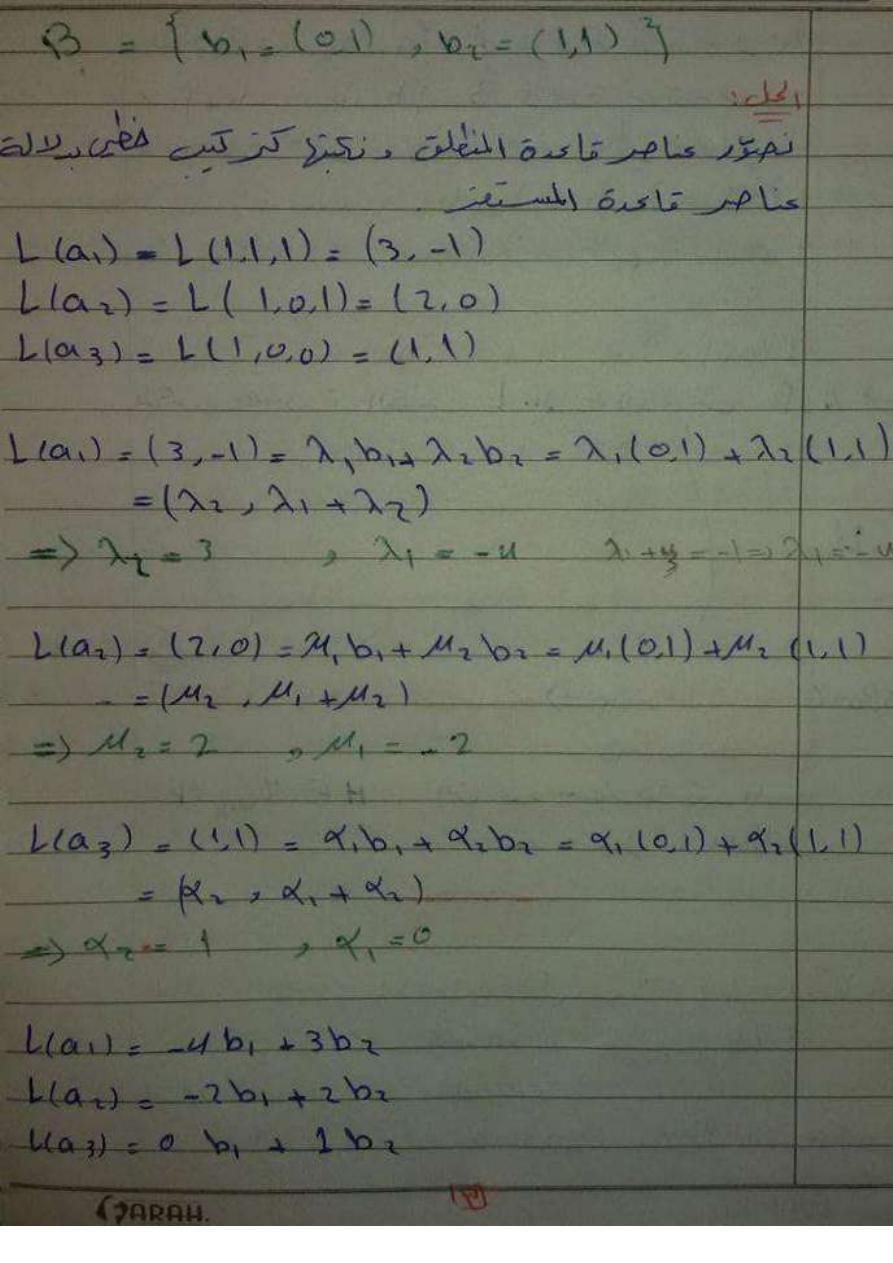 B = { b₁ = (0,1) , b₂ = (1,1) }
الحل:
نصوّر عناصر قاعدة المنطلق و نكتبها كتركيب خطي بدلالة
عناصر قاعدة المستقر
L(a₁) = L(1,1,1) = (3,-1)
L(a₂) = L(1,0,1) = (2,0)
L(a₃) = L(1,0,0) = (1,1)
L(a₁) = (3,-1) = λ₁b₁ + λ₂b₂ = λ₁(0,1) + λ₂(1,1)
= (λ₂ , λ₁ + λ₂)
=> λ₂ = 3 , λ₁ = -4 λ₁ + 3 = -1 => λ₁ = -4
L(a₂) = (2,0) = μ₁b₁ + μ₂b₂ = μ₁(0,1) + μ₂(1,1)
= (μ₂ , μ₁ + μ₂)
=> μ₂ = 2 , μ₁ = -2
L(a₃) = (1,1) = α₁b₁ + α₂b₂ = α₁(0,1) + α₂(1,1)
= (α₂ , α₁ + α₂)
=> α₂ = 1 , α₁ = 0
L(a₁) = -4b₁ + 3b₂
L(a₂) = -2b₁ + 2b₂
L(a₃) = 0 b₁ + 1 b₂
SARAH.